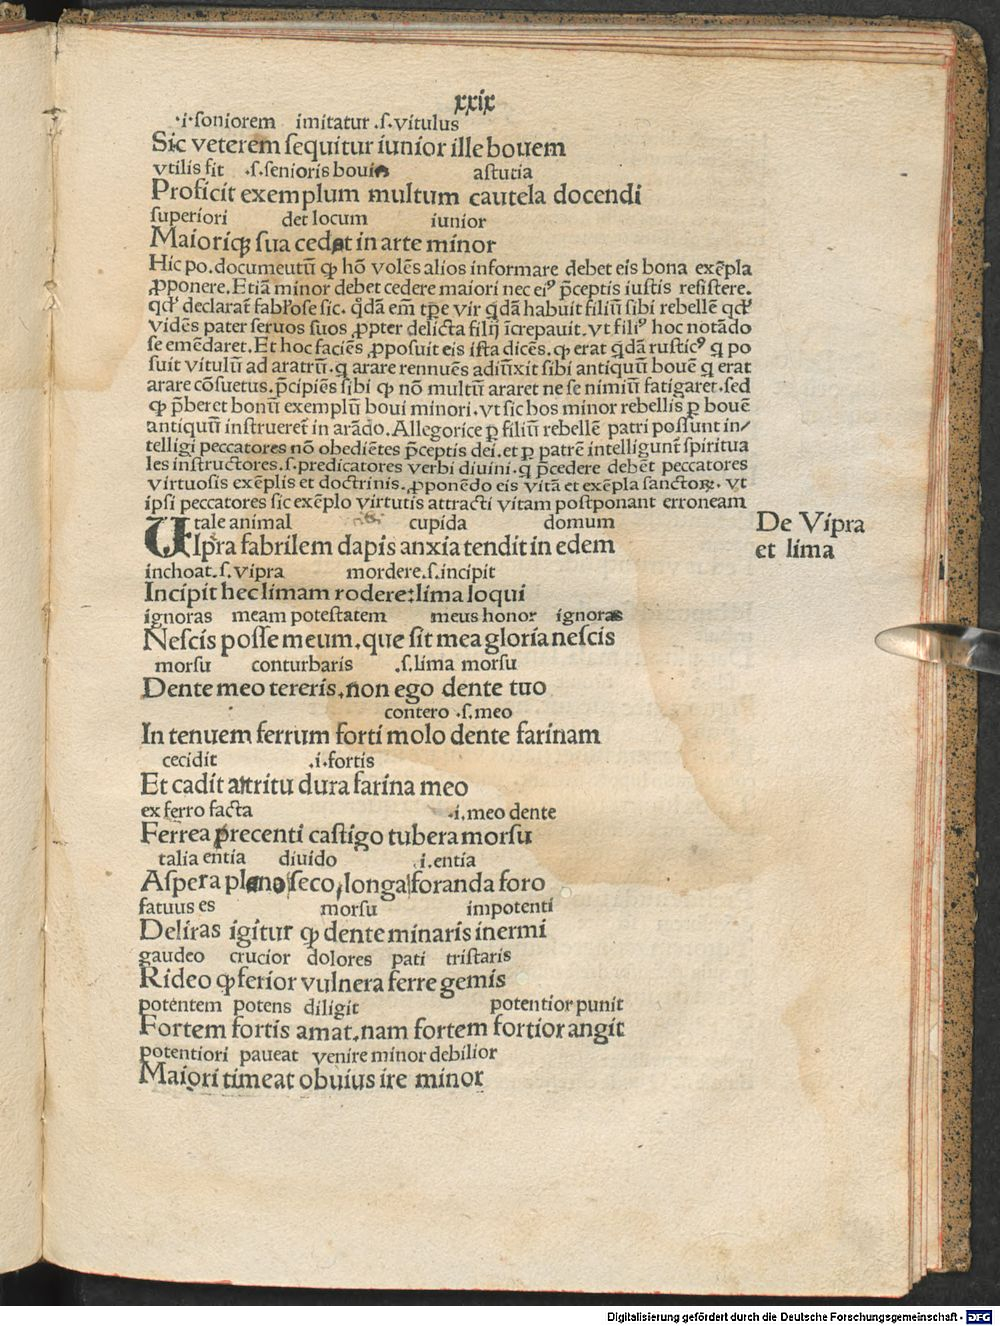 xxix
.i.soniorem imitatur .s.vitulus
Sic veterem sequitur iunior ille bouem
vtilis fit .s.senioris bouin astutia
Proficit exemplum multum cautela docendi
superiori det locum iunior
Maioriqꝫ sua cedat in arte minor
Hic po. documeutū ꝙ hō volēs alios informare debet eis bona exēpla
ꝓponere. Etiā minor debet cedere maiori nec eiꝰ p̄ceptis iustis resistere.
qdˡ declarat̄ fabl̄ose sic. qͥdā em̄ tp̄e vir qͥdā habuit filiū sibi rebellē qdˡ
vidēs pater seruos suos ꝓpter delicta filij īcrepauit. vt filiꝰ hoc notādo
se emēdaret. Et hoc faciēs ꝓposuit eis ista dicēs. ꝙ erat qͥdā rusticꝰ q̇ po
suit vitulū ad aratrū. q̇ arare rennuēs adiūxit sibi antiquū bouē q̇ erat
arare cōsuetus. p̄cipiēs sibi ꝙ nō multū araret ne se nimiū fatigaret. sed
ꝙ p̄beret bonū exemplū boui minori. vt sic bos minor rebellis ꝑ bouē
antiquū instrueret̄ in arādo. Allegorice ꝑ filiū rebellē patri possunt in/
telligi peccatores nō obediētes p̄ceptis dei. et ꝑ patrē intelligunt̄ spiritua
les instructores. s. predicatores verbi diuini. q̇ p̄cedere debēt peccatores
virtuosis exēplis et doctrinis. ꝓponēdo eis vitā et exēpla sanctoꝝ. vt
ipsi peccatores sic exēplo virtutis attracti vitam postponant erroneam
tale animal cupida domum
UIpra fabrilem dapis anxia tendit in edem
De Vipra
et lima
inchoat. s. vipra mordere. s. incipit
Incipit hec limam rodere: lima loqui
ignoras meam potestatem meus honor ignoras
Nescis posse meum. que sit mea gloria nescis
morsu conturbaris .s. lima morsu
Dente meo tereris. non ego dente tuo
contero .s. meo
In tenuem ferrum forti molo dente farinam
cecidit .i. fortis
Et cadit attritu dura farina meo
ex ferro facta .i. meo dente
Ferrea precenti castigo tubera morsu
talia entia diuido .i. entia
Aspera plano seco, longa foranda foro
fatuus es morsu impotenti
Deliras igitur ꝙ dente minaris inermi
gaudeo crucior dolores pati tristaris
Rideo ꝙ ferior vulnera ferre gemis
potentem potens diligit potentior punit
Fortem fortis amat. nam fortem fortior angit
potentiori paueat venire minor debilior
Maiori timeat obuius ire minor
Digitalisierung gefördert durch die Deutsche Forschungsgemeinschaft - DFG